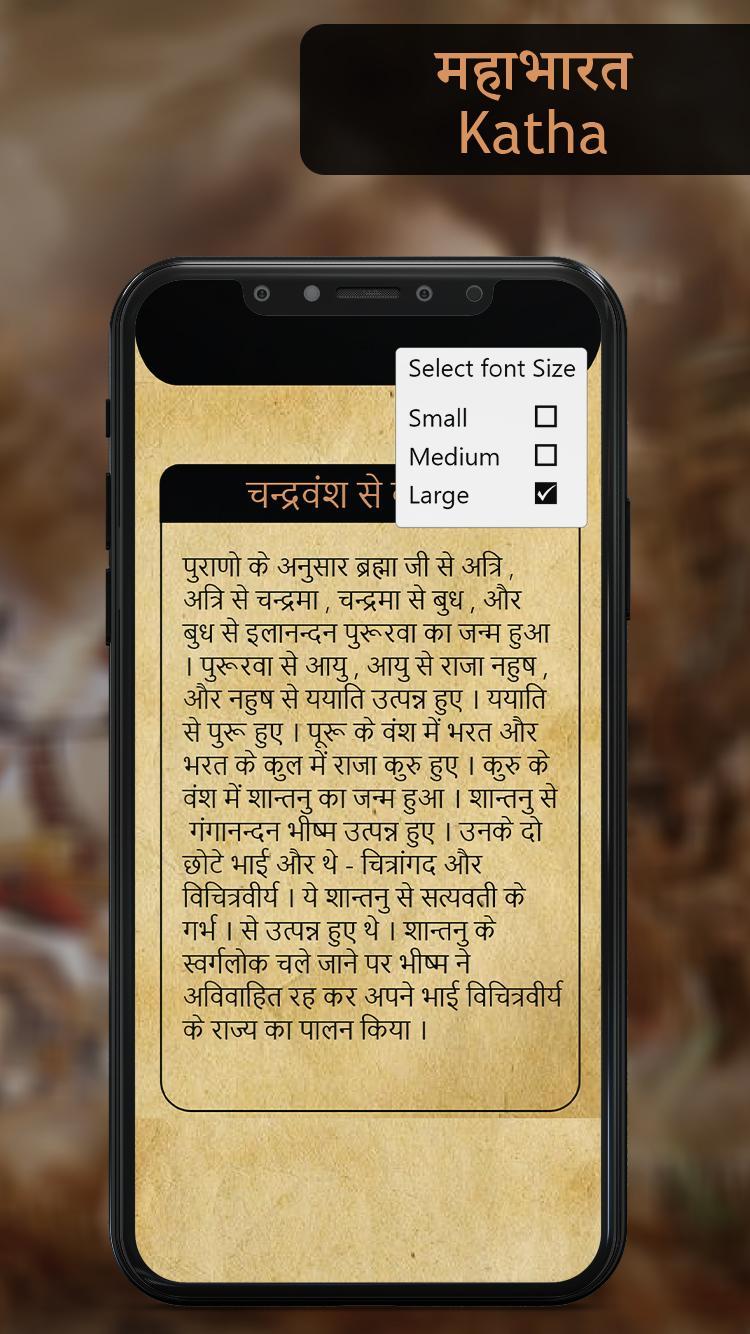 महाभारत
Katha
Select font Size
Small
Medium
Large
चन्द्रवंश से
पुराणो के अनुसार ब्रह्मा जी से अत्रि ,
अत्रि से चन्द्रमा , चन्द्रमा से बुध , और
बुध से इलानन्दन पुरूरवा का जन्म हुआ
। पुरूरवा से आयु , आयु से राजा नहुष ,
और नहुष से ययाति उत्पन्न हुए । ययाति
से पुरू हुए । पूरू के वंश में भरत और
भरत के कुल में राजा कुरु हुए । कुरु के
वंश में शान्तनु का जन्म हुआ । शान्तनु से
गंगानन्दन भीष्म उत्पन्न हुए । उनके दो
छोटे भाई और थे - चित्रांगद और
विचित्रवीर्य । ये शान्तनु से सत्यवती के
गर्भ । से उत्पन्न हुए थे । शान्तनु के
स्वर्गलोक चले जाने पर भीष्म ने
अविवाहित रह कर अपने भाई विचित्रवीर्य
के राज्य का पालन किया ।